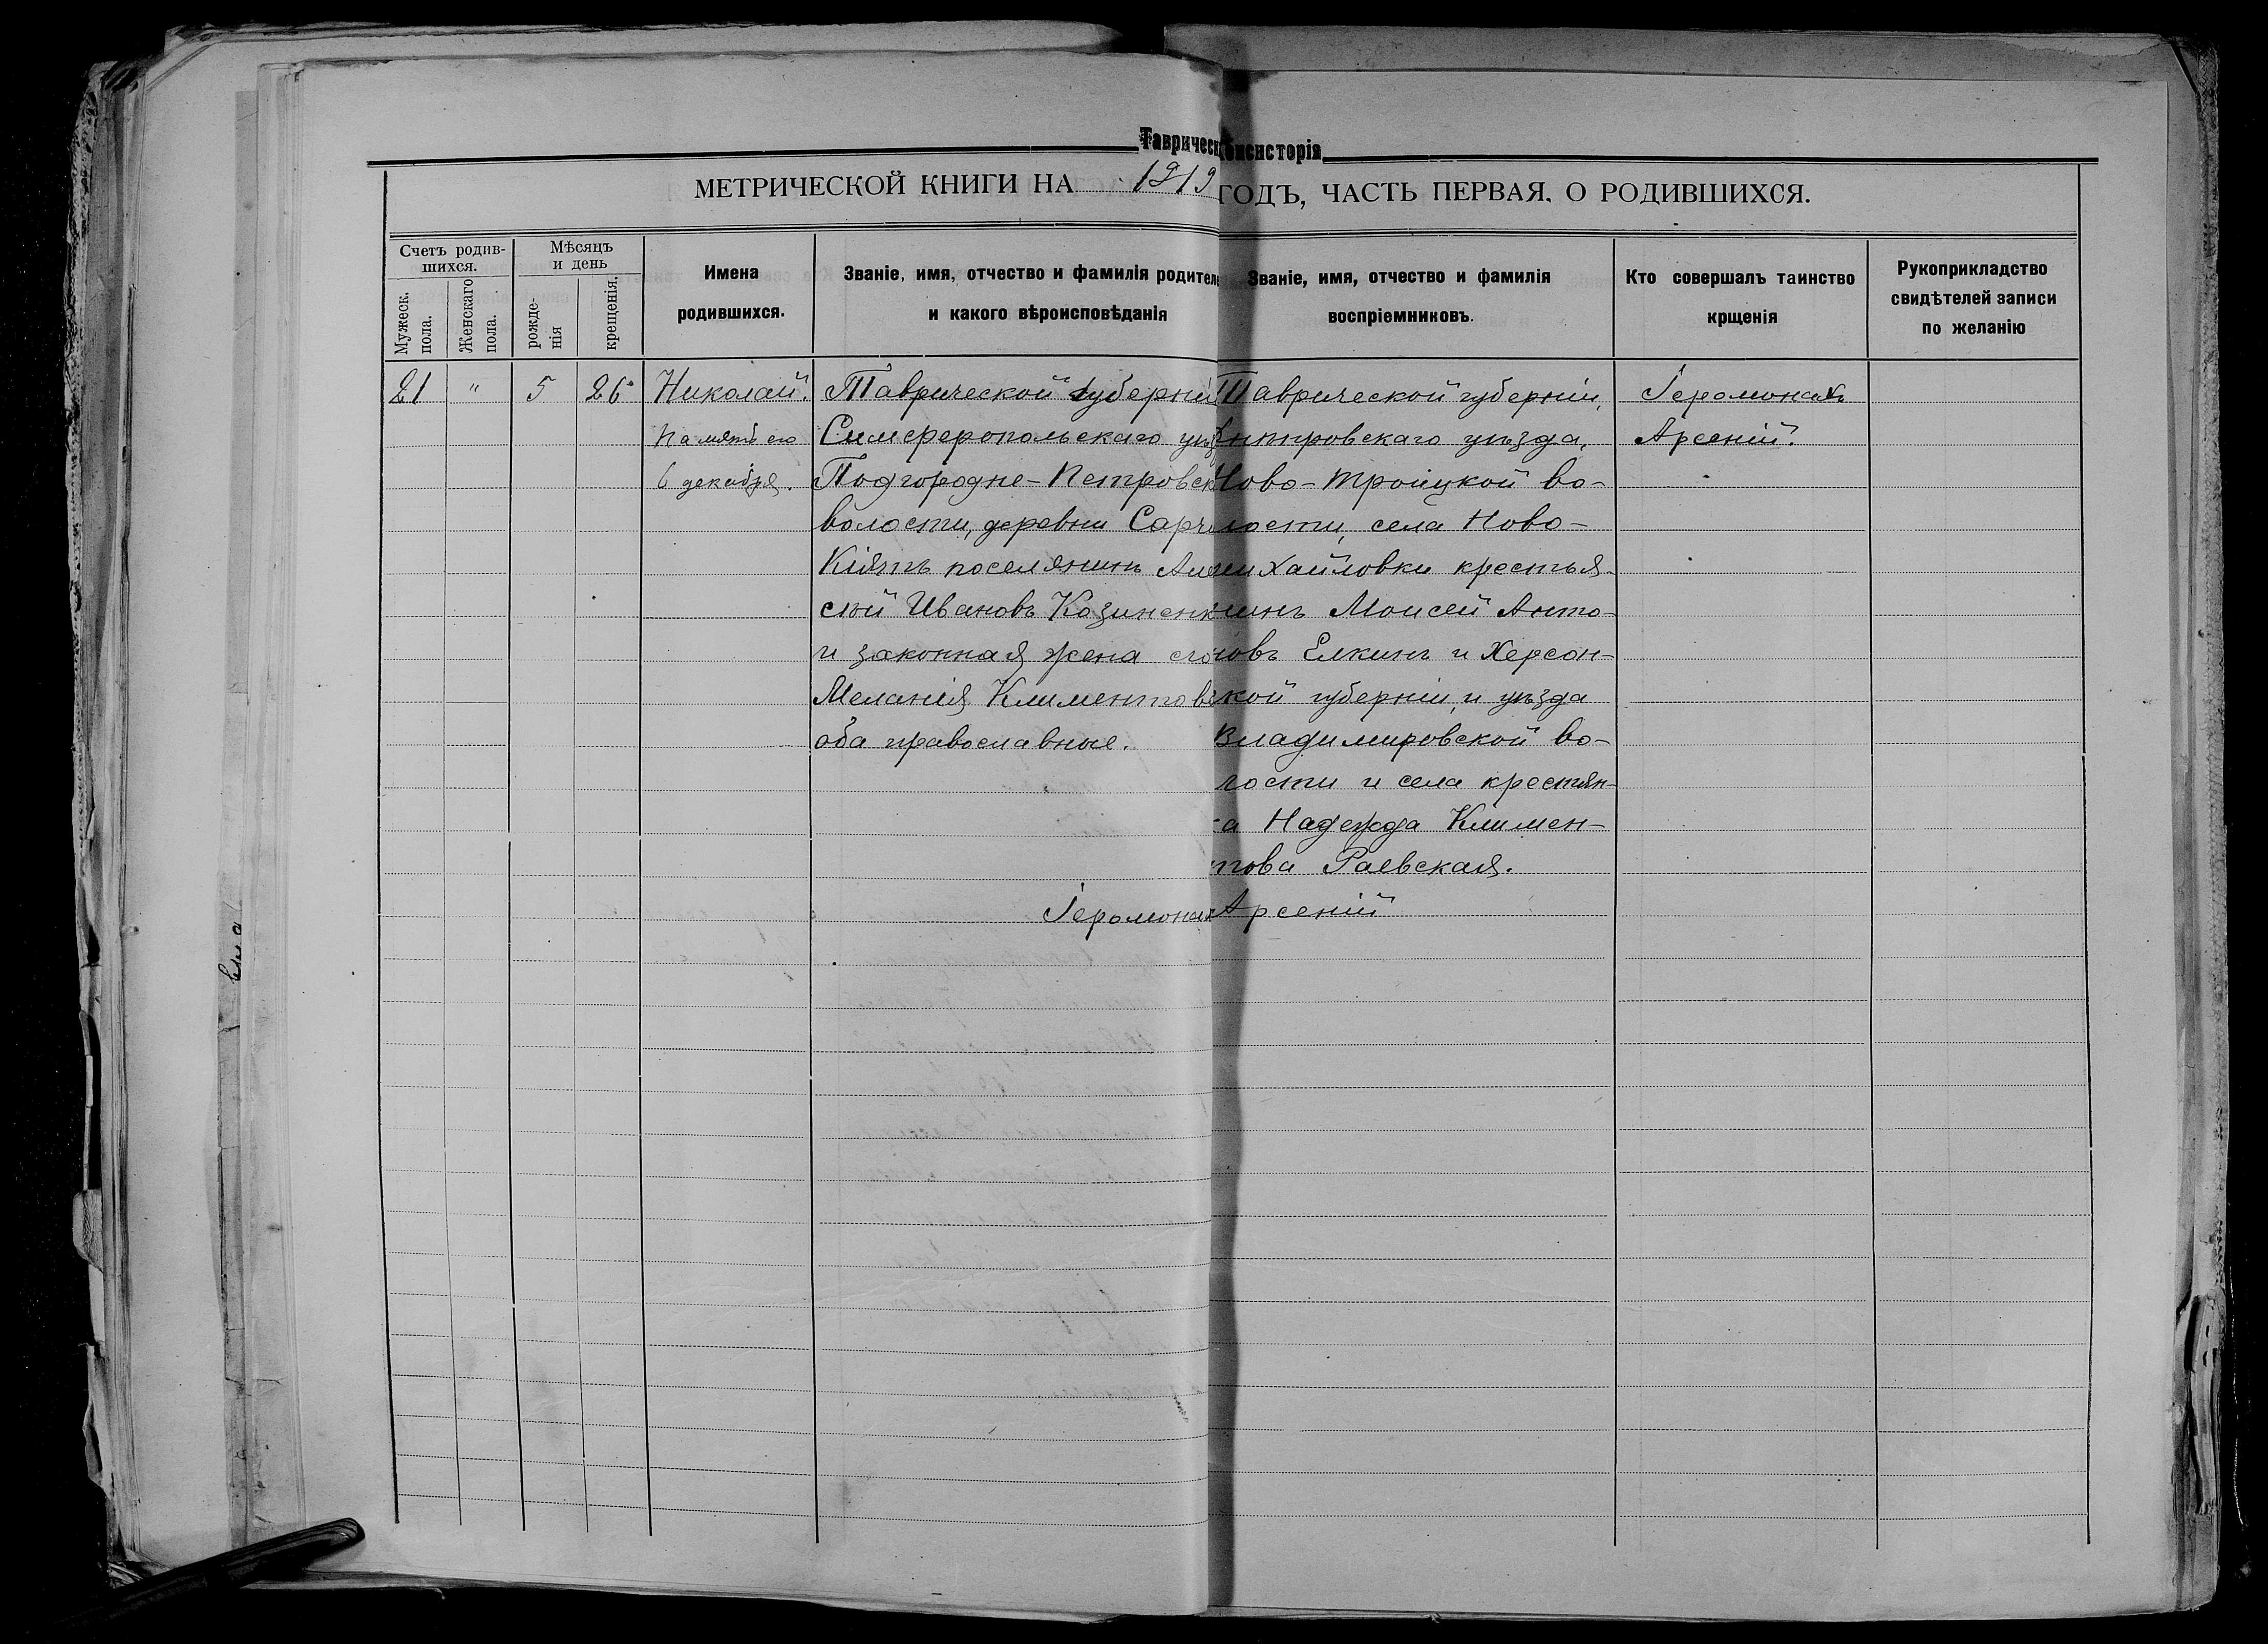 Таврическ
онсисторія
МЕТРИЧЕСКОЙ КНИГИ НА 1919
ГОДЪ, ЧАСТЬ ПЕРВАЯ. О РОДИВШИХСЯ.
Счетъ родив-
шихся.
Мужеск.
пола.
Женскаго
пола.
Мѣсяцъ
и день
рожде-
нія
крещенія.
Имена
родившихся.
Званіе, имя, отчество и фамилія родителе
и какого вѣроисповѣданія
Званіе, имя, отчество и фамилія
воспріемниковъ.
Кто совершалъ таинство
крщенія
Рукоприкладство
свидѣтелей записи
по желанію
21 " 5 26
Николай.
Память его
6 декабря.
Таврической губерніи
Симферопольскаго уѣз
Подгородне-Петровск
волости, деревни Сарч
Кіятъ поселянинъ Але
сѣй Ивановъ Козиненк
и законная жена его
Меланія Климентов
оба православные.
Таврической губерніи,
Днѣпровскаго уѣзда,
Ново-Троицкой во-
лости, села Ново-
михайловки крестья-
нинъ Моисей Анто-
новъ Елкинъ и Херсон-
ской губерніи, и уѣзда
Владимировской во-
лости и села крестян-
ка Надежда Климен-
това Раевская.
Іеромонахъ
Арсеній.
Іеромонах Арсеній